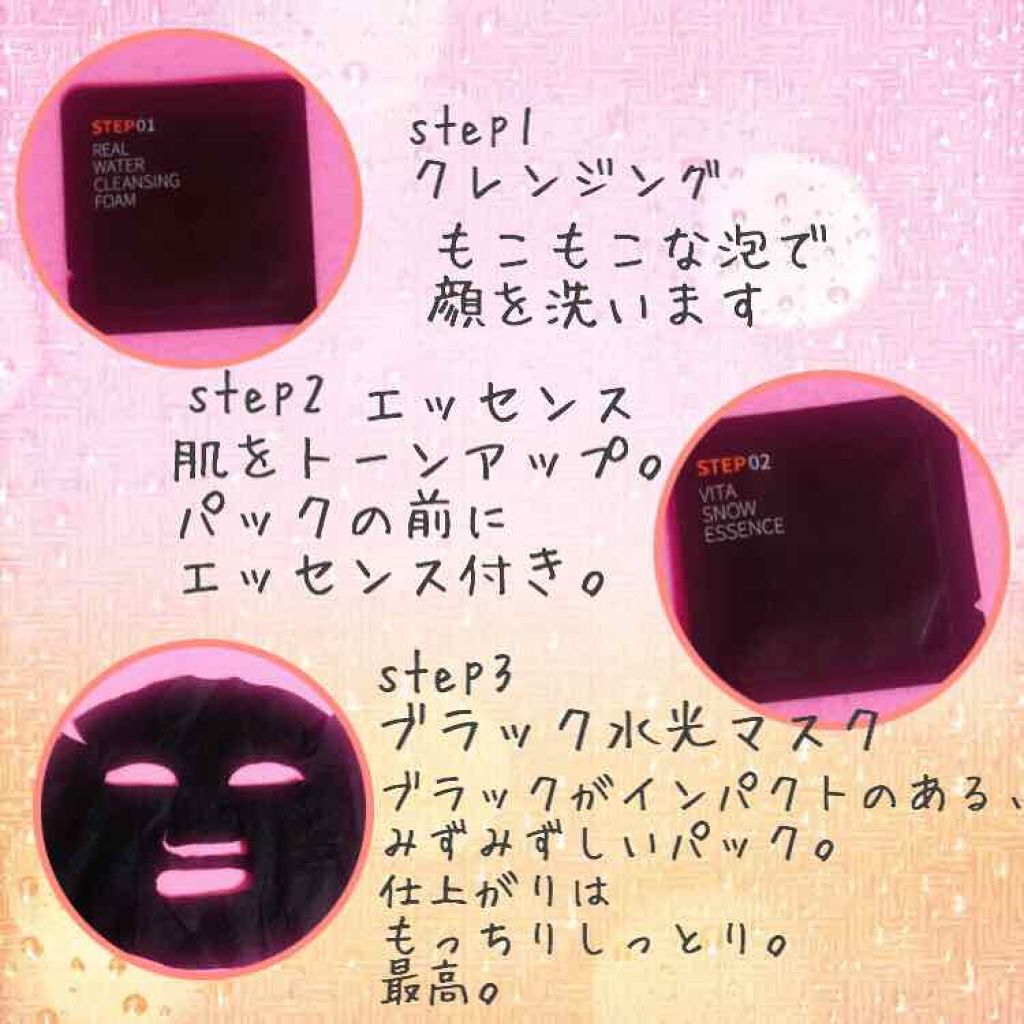 STEP01
REAL
WATER
CLEANSING
FOAM
step1
クレンジング
もこもこな泡で
顔を洗います
step2 エッセンス
肌をトーンアップ。
パックの前に
エッセンス付き。
STEP02
VITA
SNOW
ESSENCE
step3
ブラック水光マスク
ブラックがインパクトのある、
みずみずしいパック。
仕上がりは
もっちりしっとり。
最高。